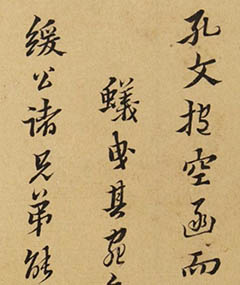 孔文揩空函而
蟻曳其
緩公諸兄弟能